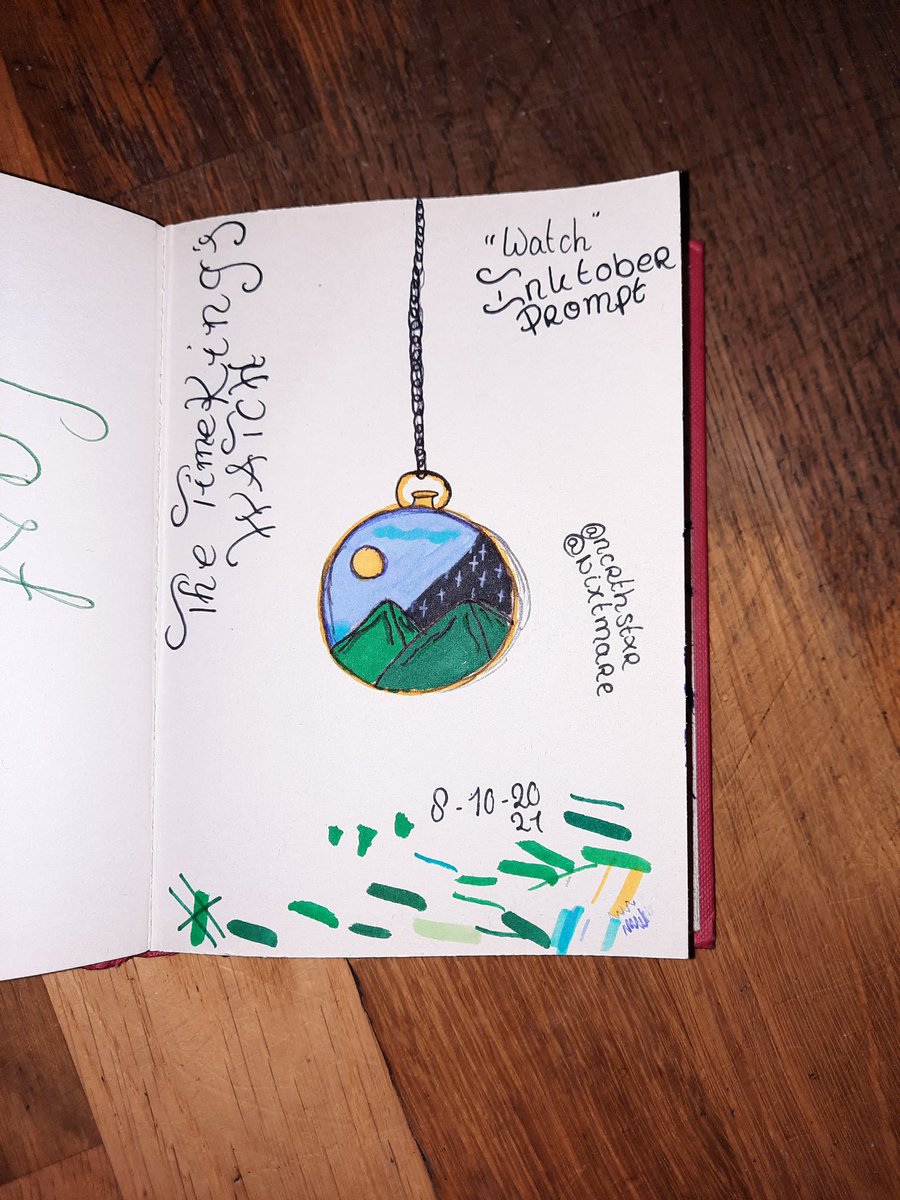 The TimeKing's
WATCH
"Watch"
Inktober
Prompt
@ncrthstxr
@Nixtmare
8-10-20
21